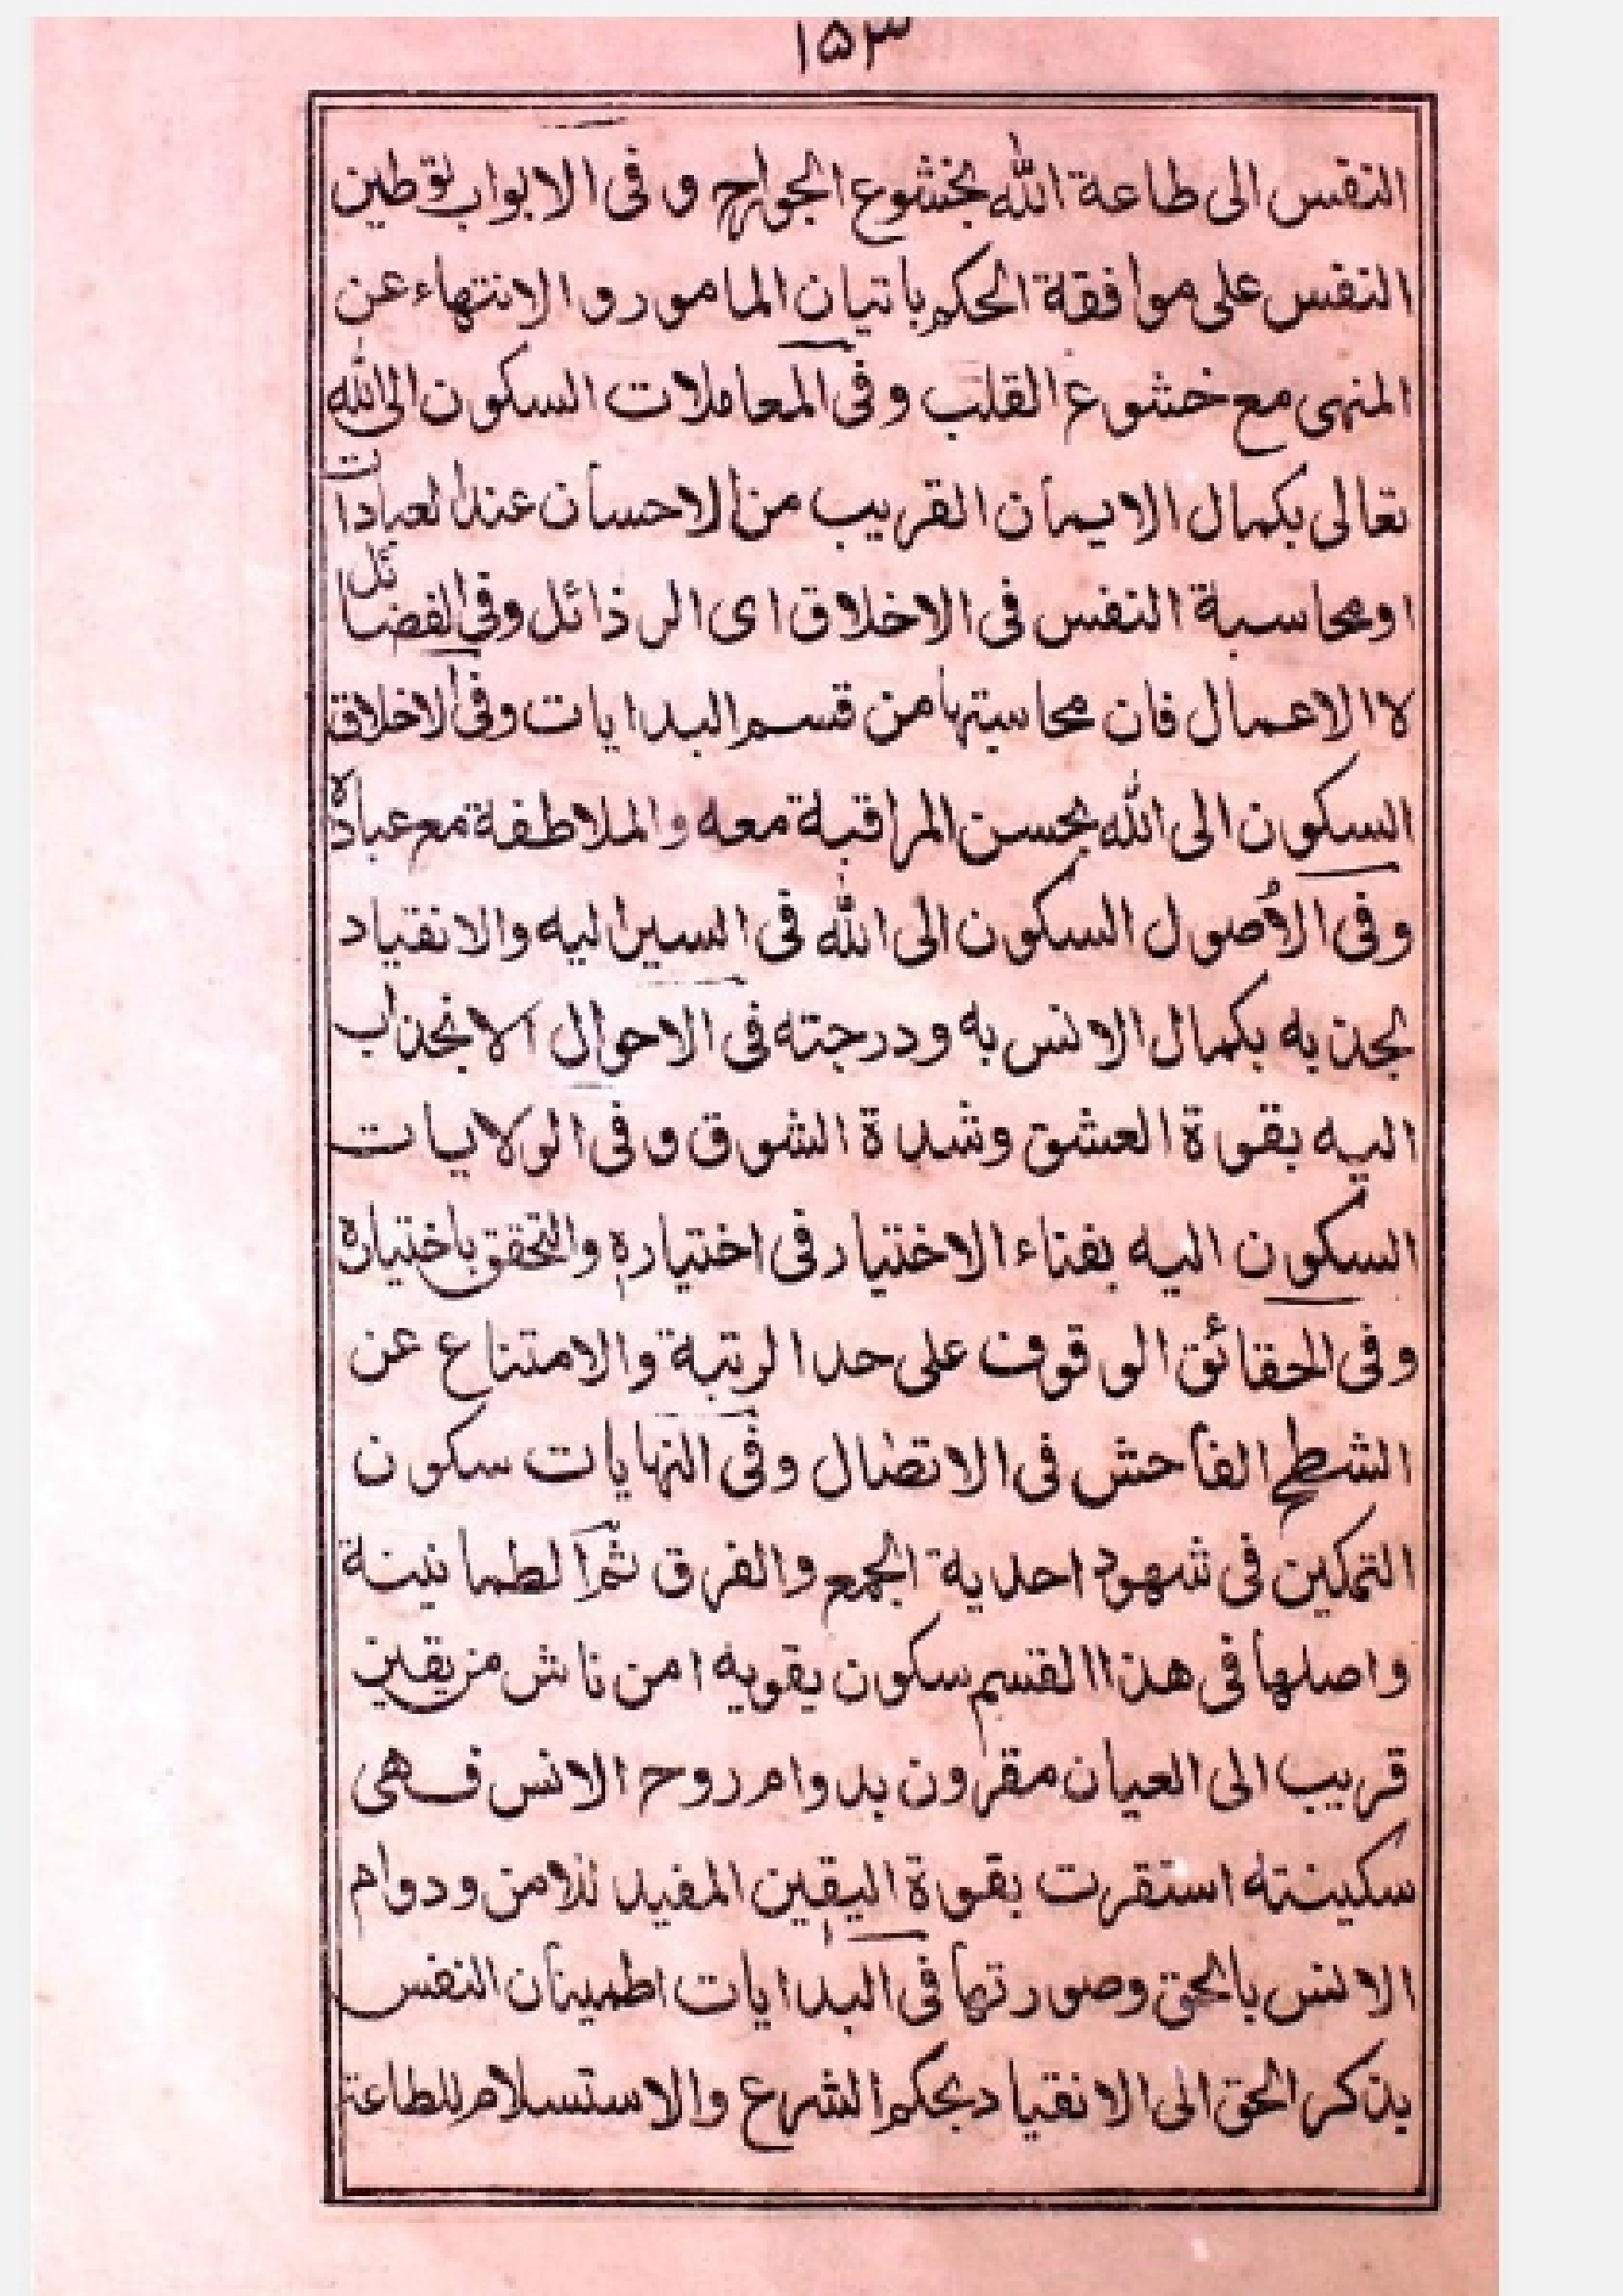 ١٥٣
النفس الى طاعة الله بخشوع الجوارح و فى الابواب توطين
النفس على موافقة الحكم باتيان المامور و الانتهاء عن
المنهى مع خشوع القلب وفى المعاملات السكون الى الله
تعالى بكمال الايمان القريب من الاحسان عند العبادات
او محاسبة النفس فى الاخلاق اى الرذائل وفى الفضائل
لا الاعمال فان محاسبتها من قسم البدايات وفى الاخلاق
السكون الى الله بحسن المراقبة معه والملاطفة مع عباده
وفى الأصول السكون الى الله فى السير اليه والانقياد
لجذبه بكمال الانس به ودرجته فى الاحوال الانجذاب
اليه بقوة العشق وشدة الشوق و فى الولايات
السكون اليه بفناء الاختيار فى اختياره والتحقق باختياره
وفى الحقائق الوقوف على حد الرتبة والامتناع عن
الشطح الفاحش فى الاتصال وفى النهايات سكون
التمكين فى شهود احدية الجمع والفرق ثم الطمانينة
واصلها فى هذا القسم سكون يقويه امن ناش من يقين
قريب الى العيان مقرون بدوام روح الانس فهى
سكينته استقرت بقوة اليقين المفيد للامن ودوام
الانس بالحق وصورتها فى البدايات اطمينان النفس
بذكر الحق الى الانقياد بحكم الشرع والاستسلام للطاعة